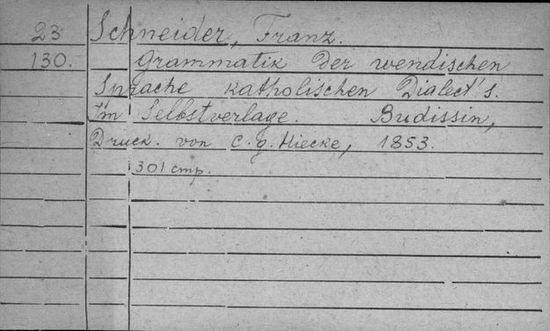 23 Schneider, Franz.
130. Grammatik der wendischen
Sprache katholischen Dialect's.
Im Selbstverlage. Budissin,
Druck. von C. G. Hiecke, 1853.
301 стр.